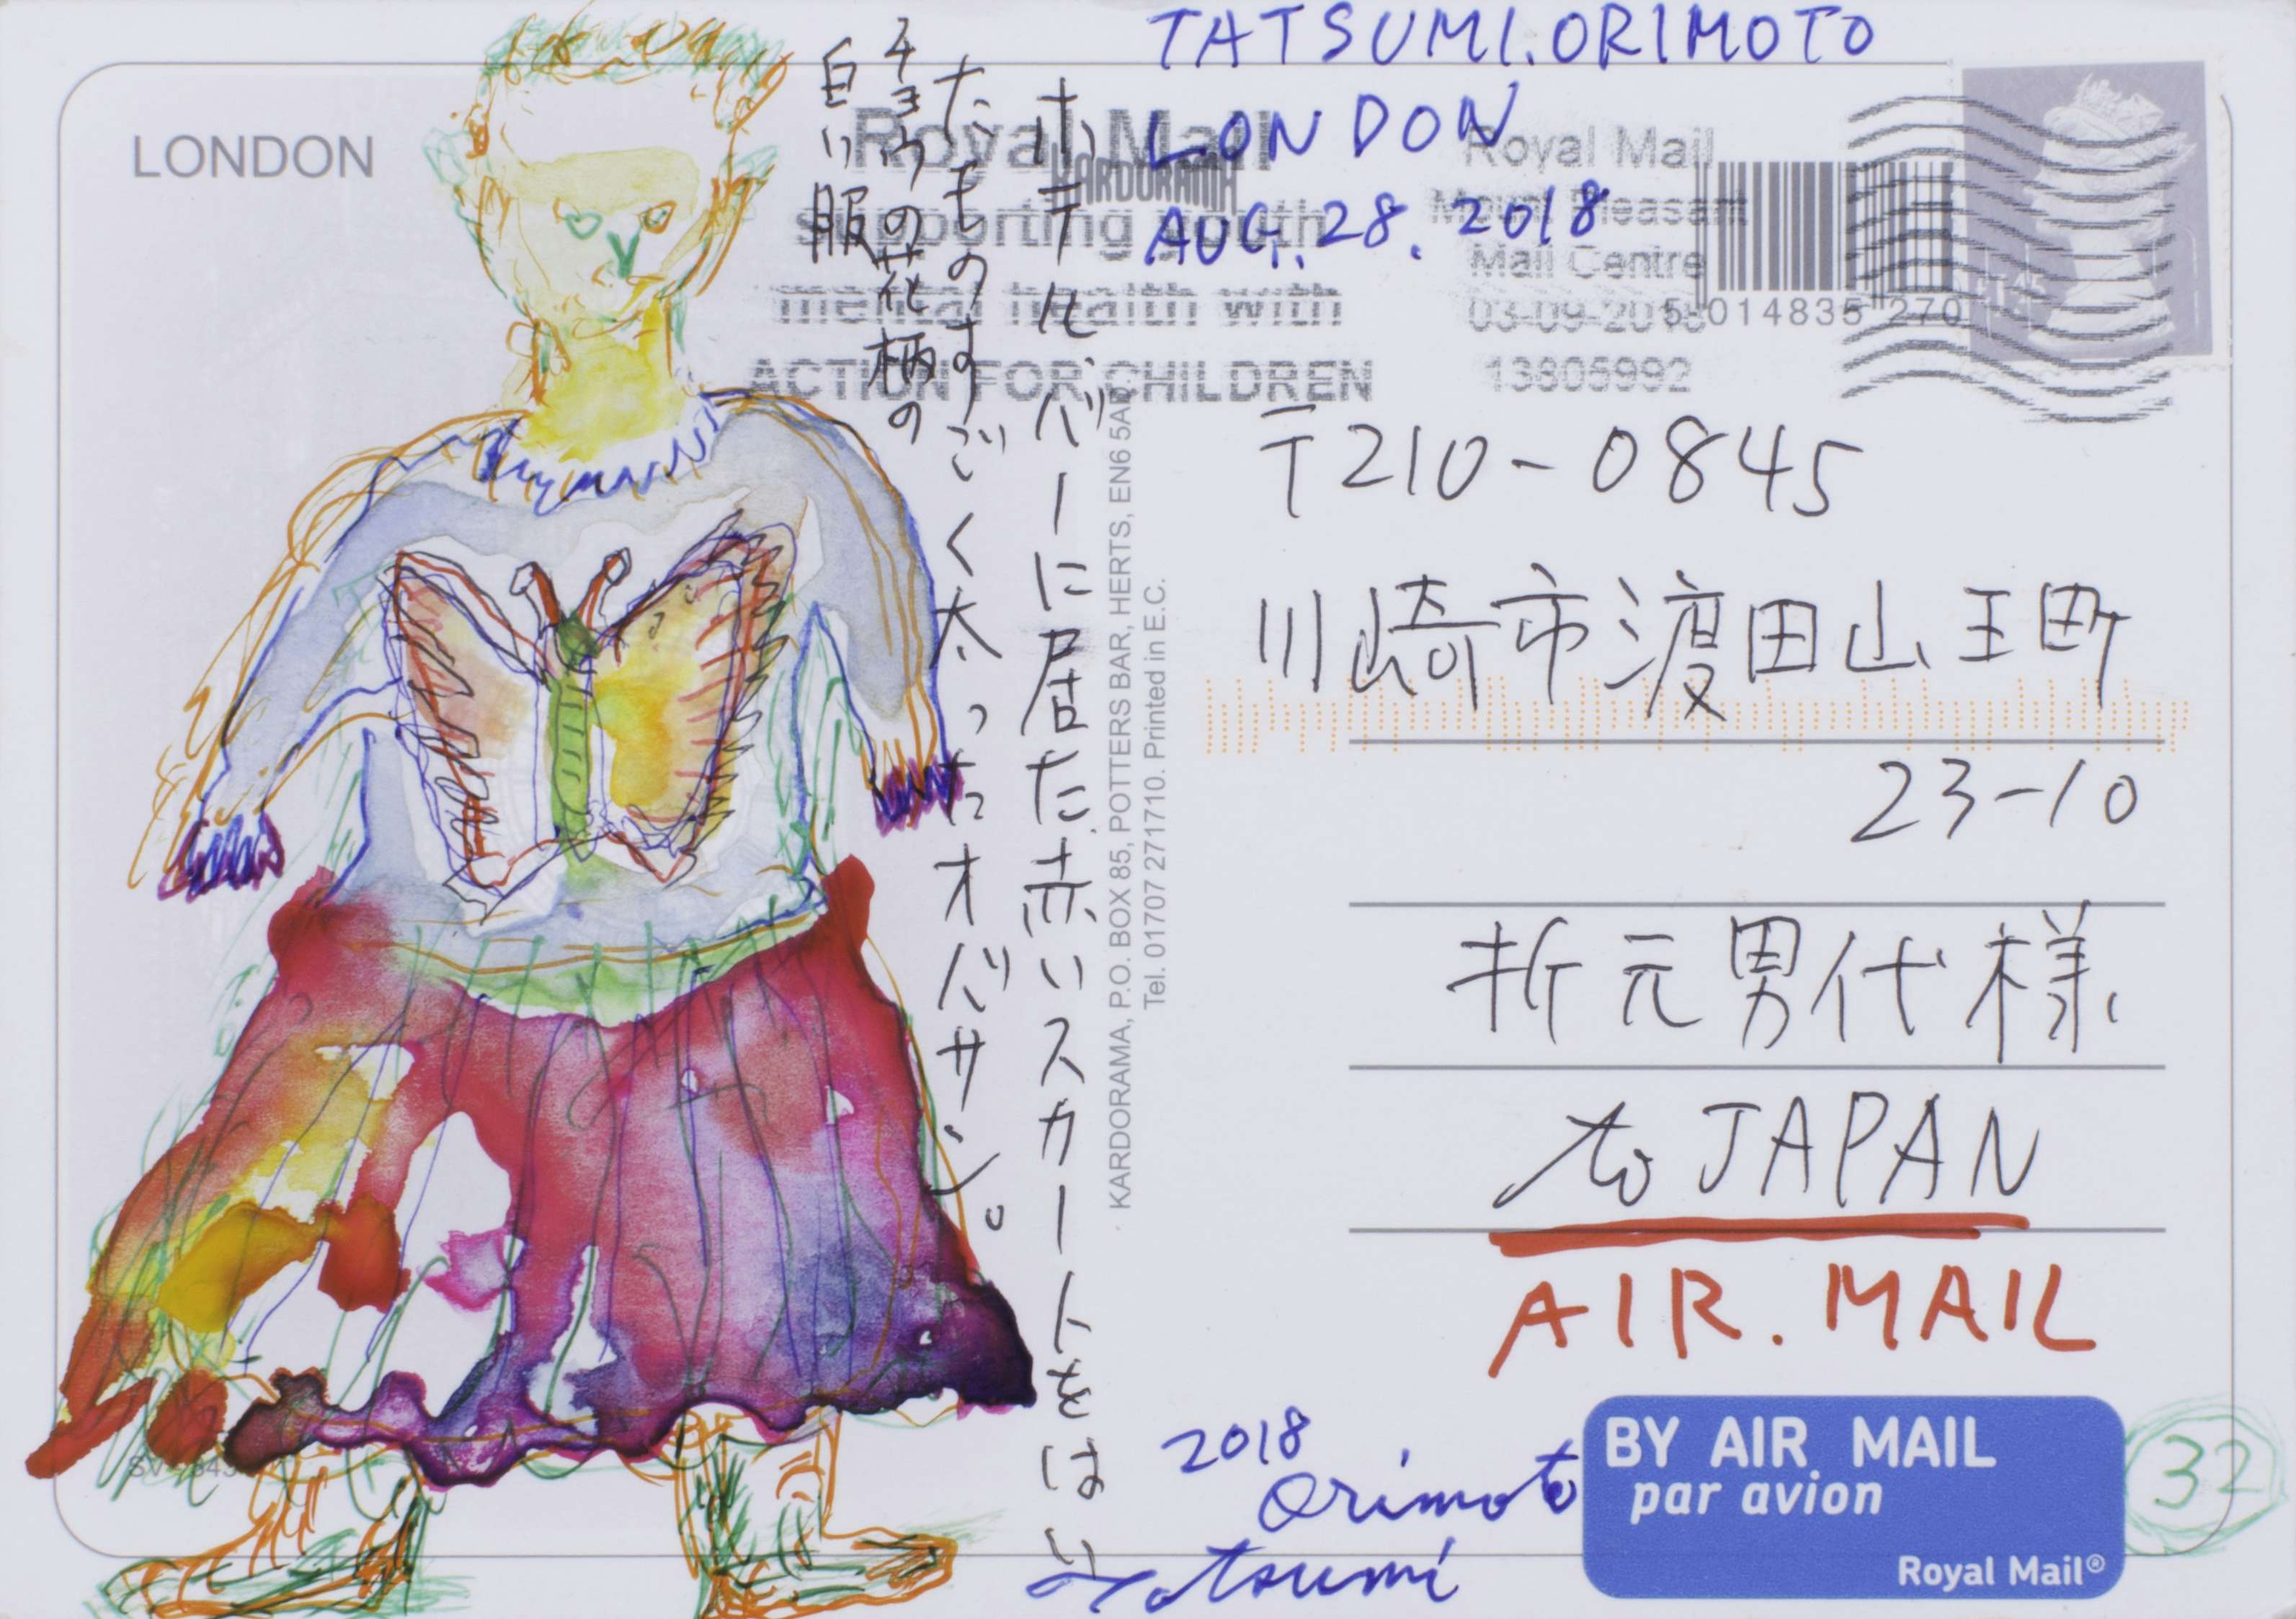 TATSUMI.ORIMOTO
LONDON
AUG.28.2018
LONDON
Royal Mail
supporting youth
mental health with
ACTION FOR CHILDREN
KARDORAMA
Royal Mail
Mount Pleasant
Mail Centre
03-09-2018
13805992
5 014835 270
ホテルバーに居た赤いスカートをはい
たものすごく太ったオバサン。
チョウの花柄の
白い服
KARDORAMA, P.O. BOX 85, POTTERS BAR, HERTS, EN6 5AD.
Tel. 01707 271710. Printed in E.C.
〒210-0845
川崎市渡田山王町
23-10
折元男代様
to JAPAN
AIR.MAIL
2018
Orimoto
Tatsumi
BY AIR MAIL
par avion
Royal Mail®
32